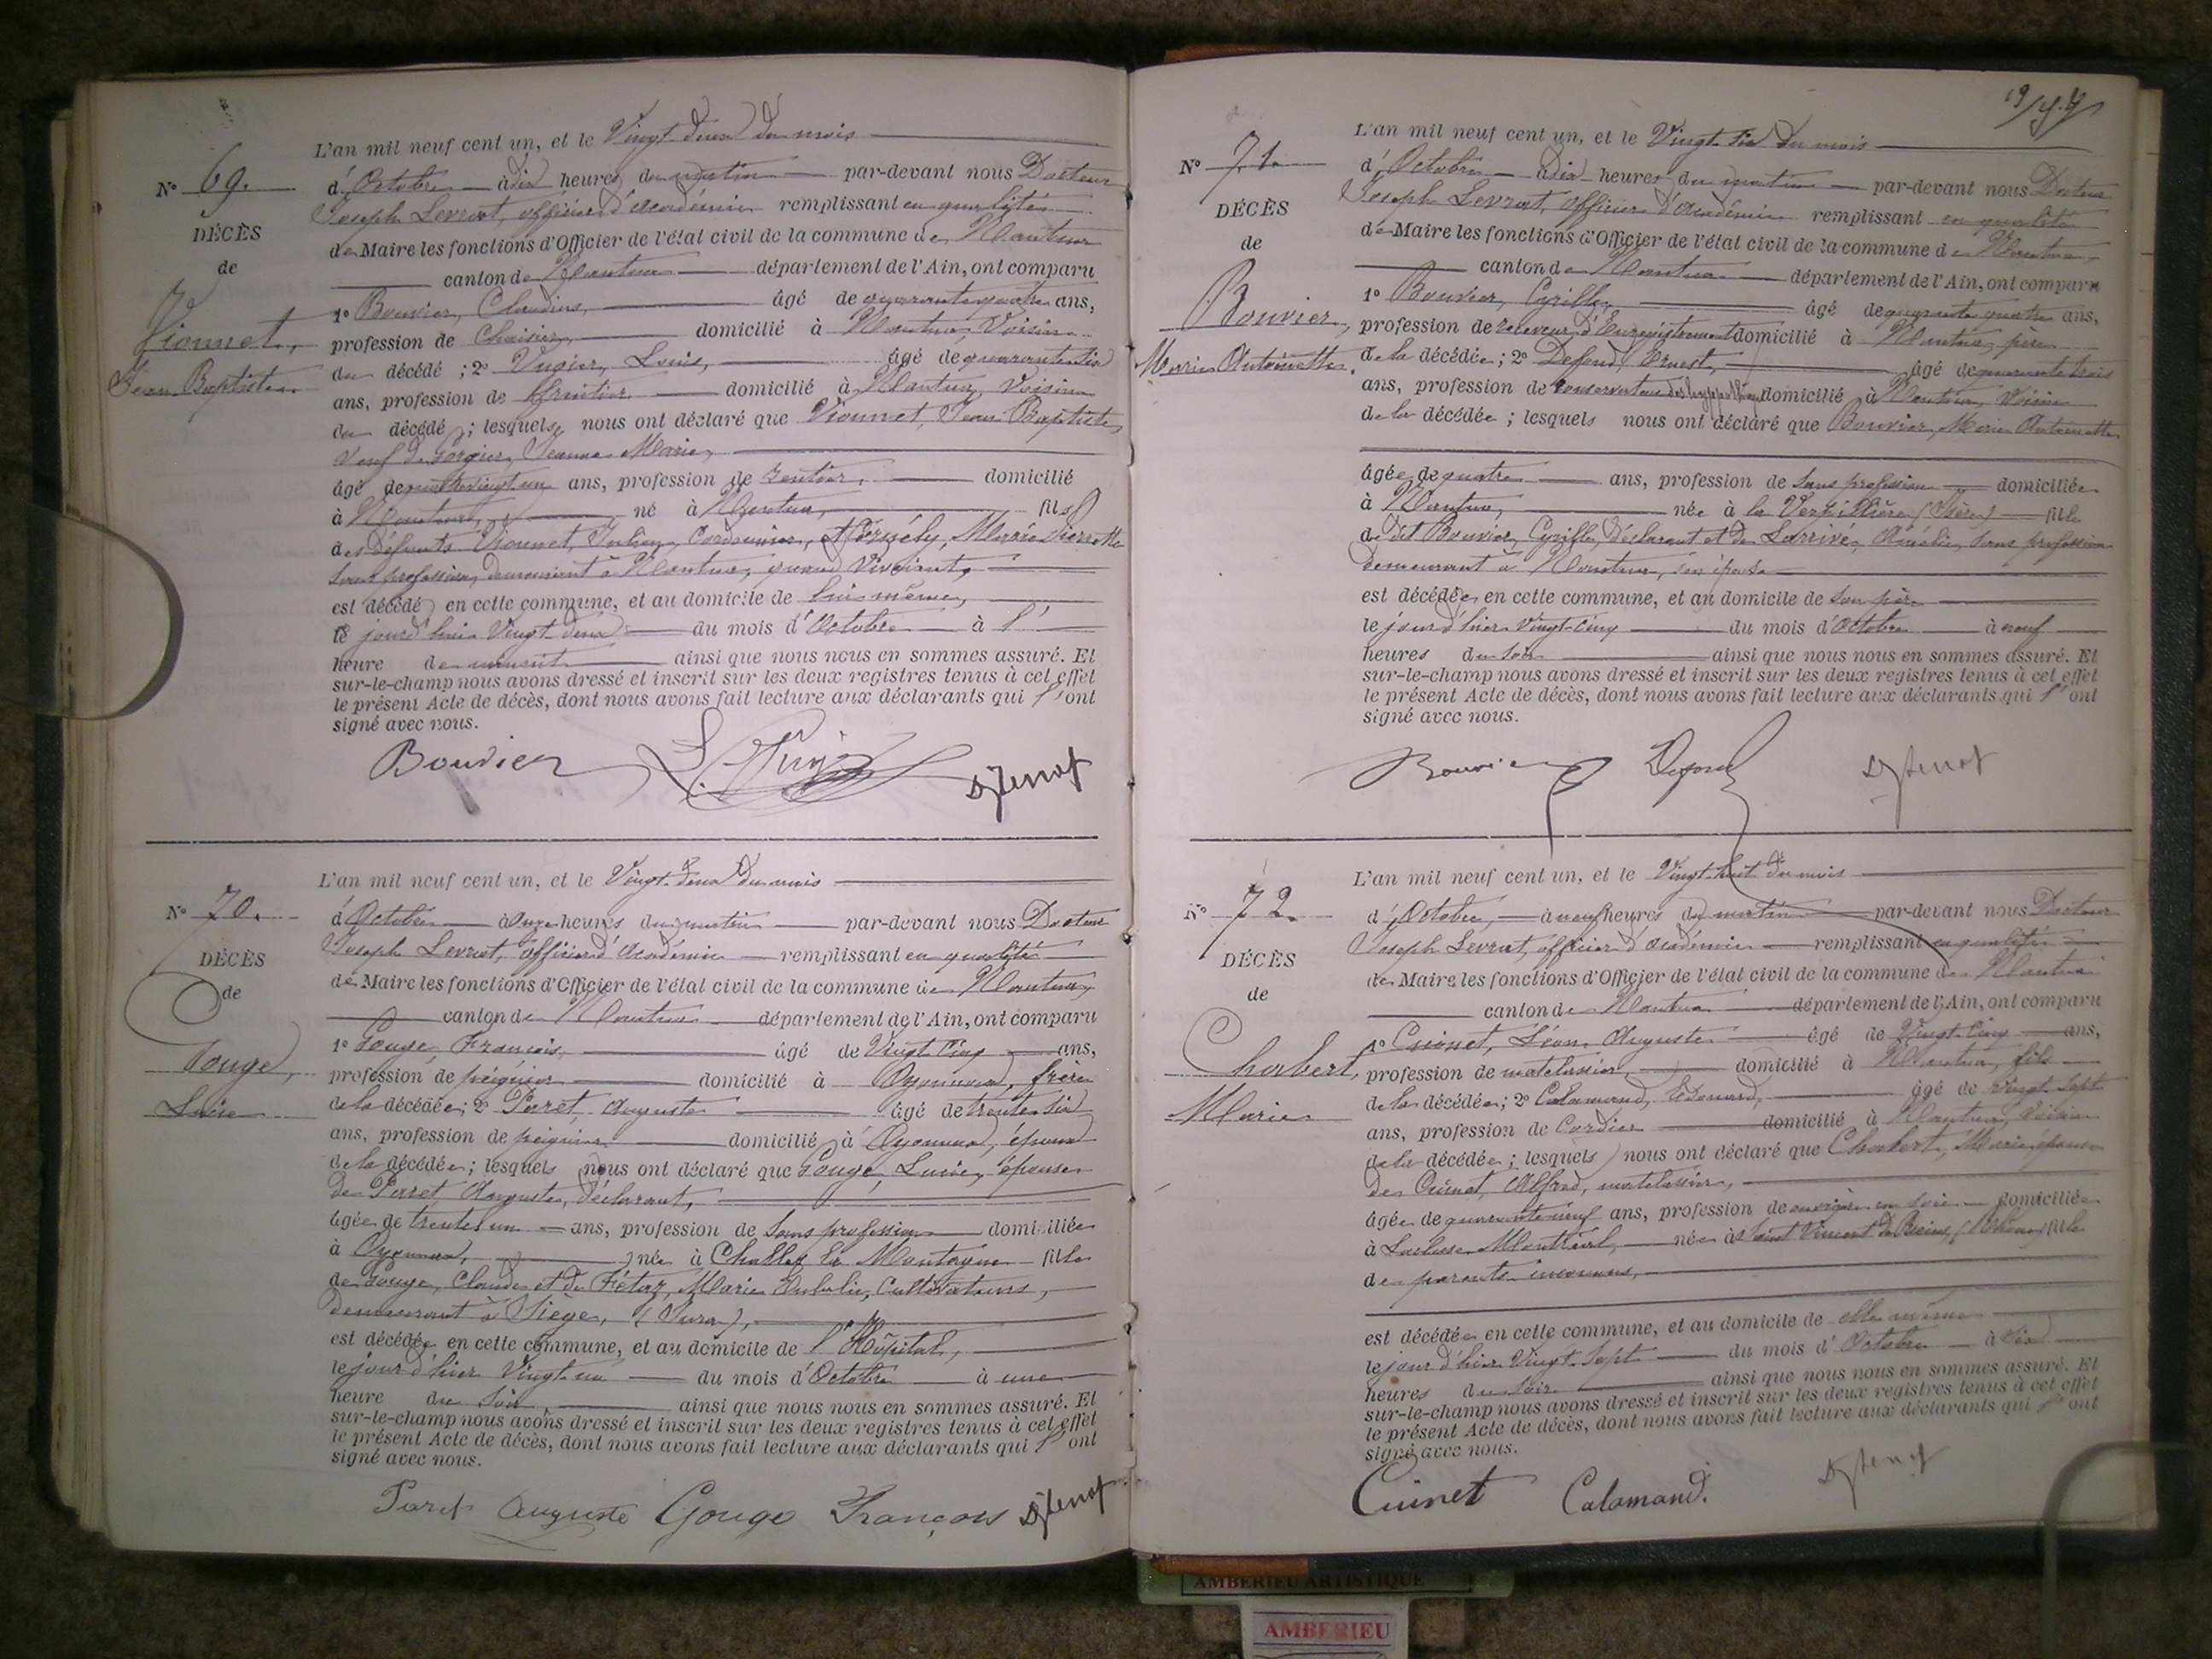 N° 69.
DÉCÈS
de
Vionnet,
Jean Baptiste
L'an mil neuf cent un, et le Vingt deux du mois
d'Octobre à dix heures du matin par-devant nous Docteur
Joseph Levrat, officier d'académie remplissant en qualité
de Maire les fonctions d'Officier de l'état civil de la commune de Nantua
canton de Nantua département de l'Ain, ont comparu
1° Bouvier, Claudius, âgé de quarante quatre ans,
profession de Chaisier, domicilié à Nantua Voisin
du décédé ; 2° Louis, âgé de quarante six
ans, profession de domicilié à Nantua, Voisin
du décédé ; lesquels nous ont déclaré que Vionnet, Jean Baptiste
Veuf de Jeanne Marie,
âgé de quatre vingt un ans, profession de rentier, domicilié
à Nantua, né à Nantua, fils
des défunts Vionnet, Cordonnier, et Marie Pierrette
sans profession, demeurant à Nantua, quand vivaient,
est décédé en cette commune, et au domicile de lui même,
le jourd'hui Vingt deux du mois d'Octobre à l'
heure de minuit ainsi que nous nous en sommes assuré. Et
sur-le-champ nous avons dressé et inscrit sur les deux registres tenus à cet effet
le présent Acte de décès, dont nous avons fait lecture aux déclarants qui l'ont
signé avec nous.
Bouvier
N° 70.
DÉCÈS
de
Gouge,
Lucie
L'an mil neuf cent un, et le Vingt deux du mois
d'Octobre à onze heures du matin par-devant nous Docteur
Joseph Levrat, officier d'académie remplissant en qualité
de Maire les fonctions d'Officier de l'état civil de la commune de Nantua,
canton de Nantua département de l'Ain, ont comparu
1° Gouge, François, âgé de Vingt Cinq ans,
profession de peignier domicilié à Oyonnax, frère
de la décédée ; 2° Perret, Auguste âgé de trente six
ans, profession de peignier domicilié à Oyonnax, époux
de la décédée ; lesquels nous ont déclaré que Gouge, Lucie, épouse
de Perret, Auguste, déclarant,
âgée de trente un ans, profession de sans profession domiciliée
à Oyonnax, née à la Montagne fille
de Gouge, Claude et de Marie Eulalie, Cultivateurs,
demeurant à Viège, (Jura),
est décédée en cette commune, et au domicile de l'Hôpital,
le jour d'hier Vingt un du mois d'Octobre à une
heure du soir, ainsi que nous nous en sommes assuré. Et
sur-le-champ nous avons dressé et inscrit sur les deux registres tenus à cet effet
le présent Acte de décès, dont nous avons fait lecture aux déclarants qui l'ont
signé avec nous.
Auguste Gouge François
N° 71.
DÉCÈS
de
Bouvier,
Marie Antoinette.
L'an mil neuf cent un, et le Vingt six du mois
d'Octobre à dix heures du matin par-devant nous Docteur
Joseph Levrat, officier d'académie remplissant en qualité
de Maire les fonctions d'Officier de l'état civil de la commune de Nantua
canton de Nantua département de l'Ain, ont comparu
1° Bouvier, Cyrille, âgé de quarante quatre ans,
profession de receveur d'Enregistrement domicilié à Nantua, père
de la décédée ; 2° Ernest, âgé de quarante trois
ans, profession de conservateur des hypothèques domicilié à Nantua, Voisin
de la décédée ; lesquels nous ont déclaré que Bouvier, Marie Antoinette
âgée de quatre ans, profession de sans profession domiciliée
à Nantua, née à la Verpillière (Isère) fille
de dit Bouvier, Cyrille, déclarant et de Larrivé, Amélie, sans profession
demeurant à Nantua, son épouse
est décédée en cette commune, et au domicile de son père
le jour d'hier vingt cinq du mois d'Octobre à neuf
heures du soir ainsi que nous nous en sommes assuré. Et
sur-le-champ nous avons dressé et inscrit sur les deux registres tenus à cet effet
le présent Acte de décès, dont nous avons fait lecture aux déclarants qui l'ont
signé avec nous.
Bouvier
N° 72.
DÉCÈS
de
Chabert,
Marie
L'an mil neuf cent un, et le Vingt huit du mois
d'Octobre, à neuf heures du matin par-devant nous Docteur
Joseph Levrat, officier d'académie remplissant en qualité
de Maire les fonctions d'Officier de l'état civil de la commune de Nantua
canton de Nantua département de l'Ain, ont comparu
1° Léon Auguste âgé de Vingt Cinq ans,
profession de matelassier, domicilié à Nantua, fils
de la décédée ; 2° Calamand, Edouard, âgé de vingt sept
ans, profession de Cordier domicilié à Nantua, Voisin
de la décédée ; lesquels nous ont déclaré que Chabert, Marie épouse
de Cuinet, Alfred, matelassier,
âgée de quarante neuf ans, profession de ouvrière en soie domiciliée
à née à Saint Vincent de Reins, (Rhône) fille
de parents inconnus,
est décédée en cette commune, et au domicile de elle même
le jour d'hier Vingt Sept du mois d'Octobre à dix
heures du soir ainsi que nous nous en sommes assuré. Et
sur-le-champ nous avons dressé et inscrit sur les deux registres tenus à cet effet
le présent Acte de décès, dont nous avons fait lecture aux déclarants qui l'ont
signé avec nous.
Cuinet Calamand.
AMBERIEU ARTISTIQUE
AMBERIEU